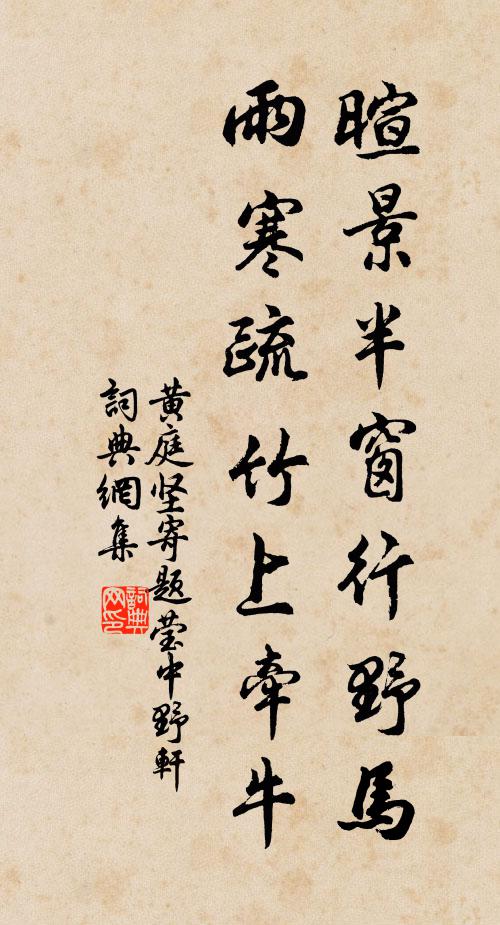 暄景半窗行野馬
雨寒疏竹上牽牛
黃庭坚寄題瑩中野軒
詞典網集
詞典网印